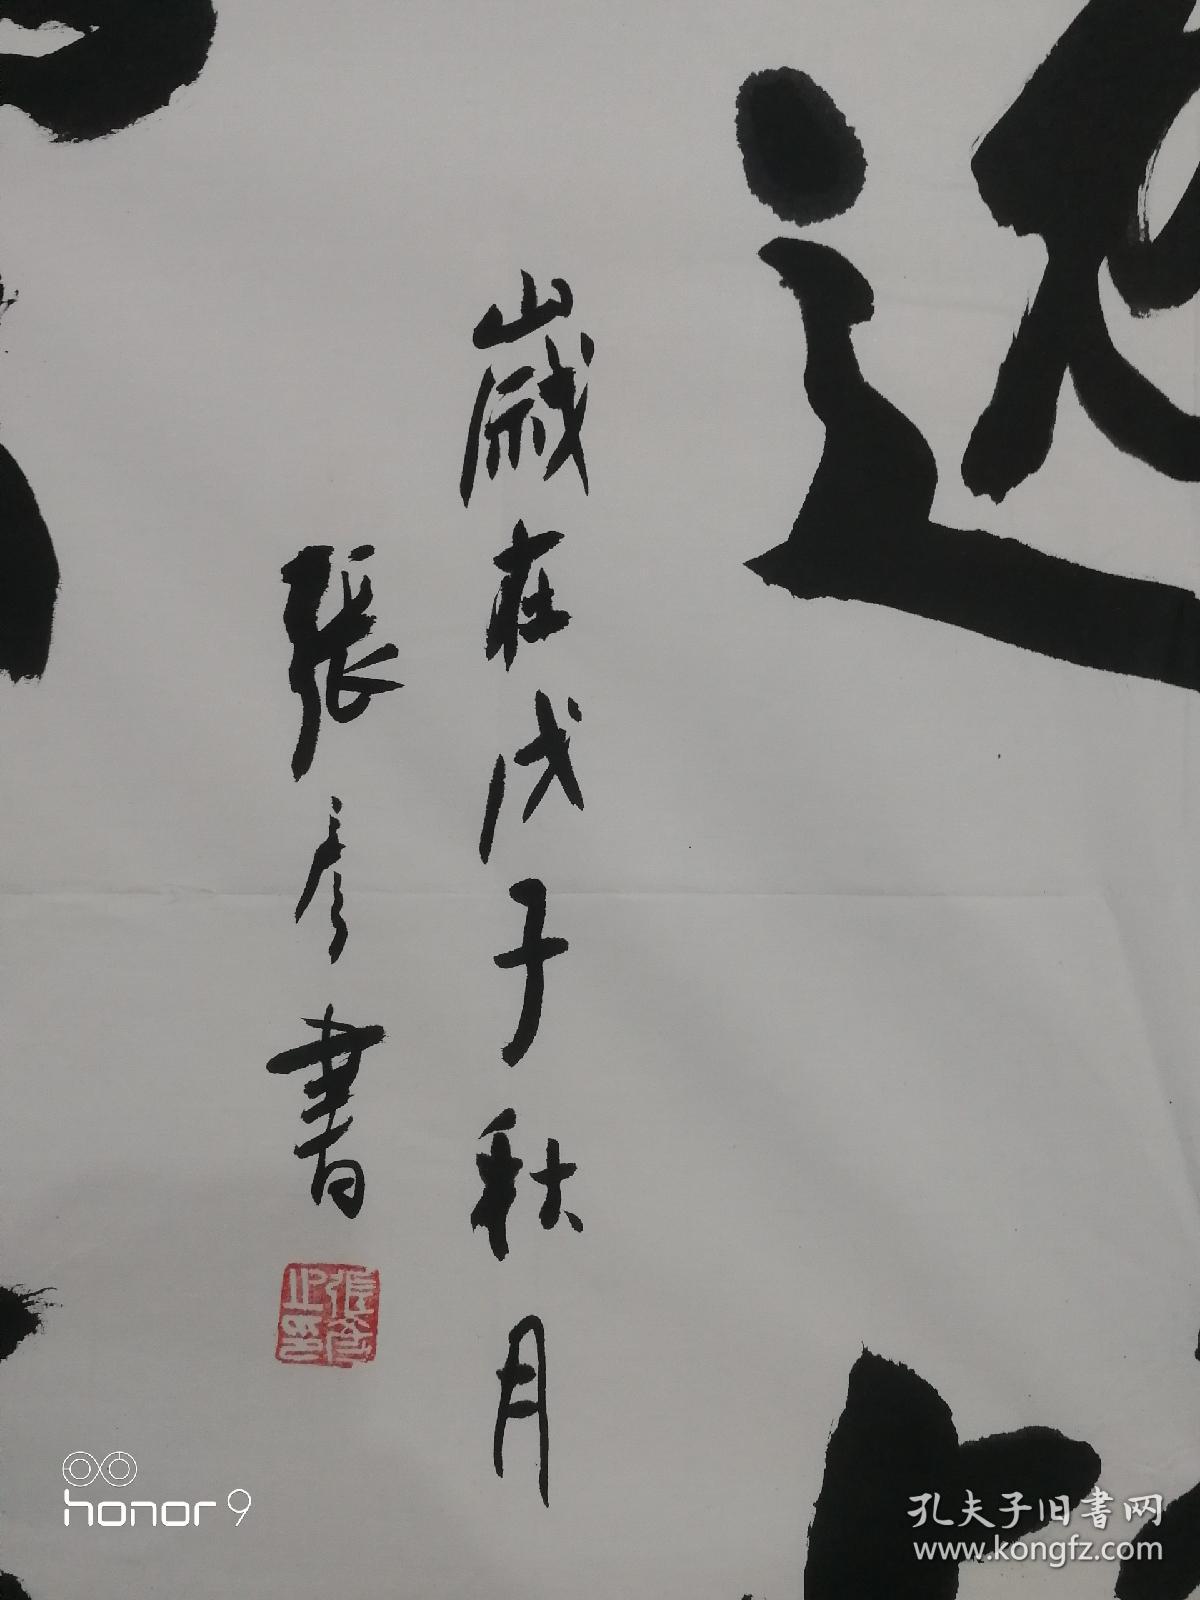 歲在戊子秋月
張彥書
張彥之印
honor 9
孔夫子旧書网
www.kongfz.com